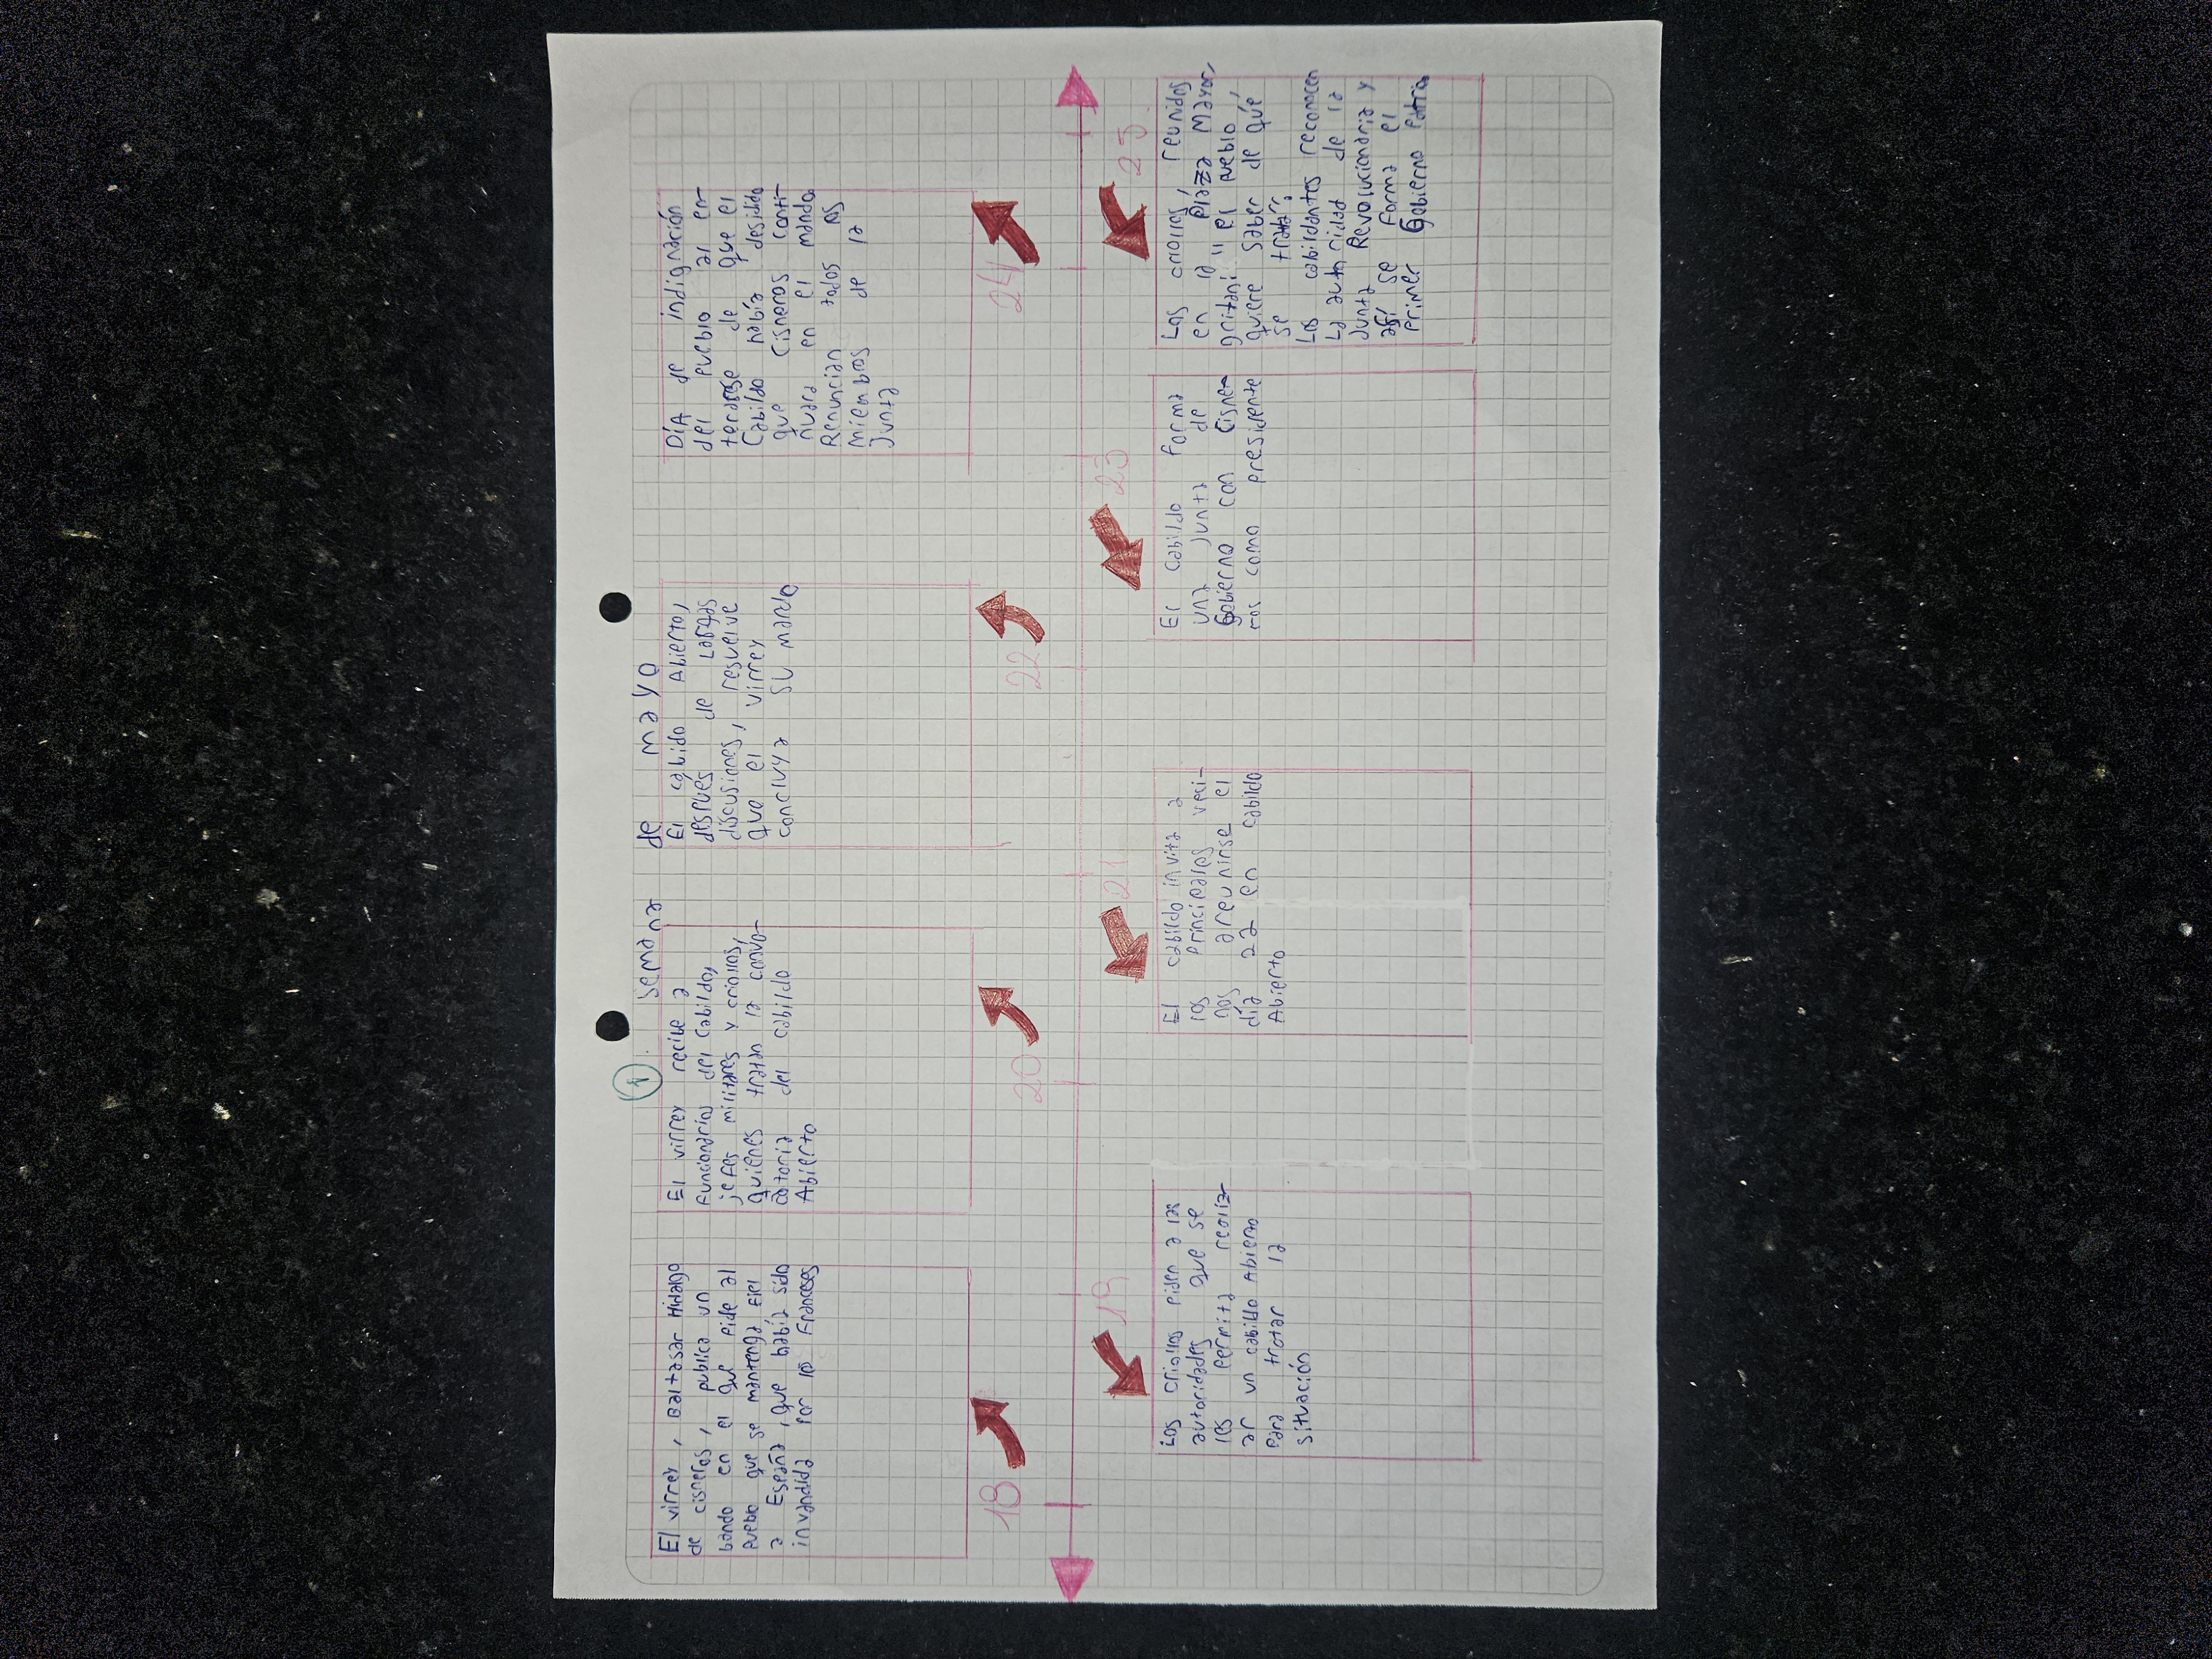 1
Semana de mayo
El virrey, Baltasar Hidalgo
de cisneros, publica un
bando en el que Pide al
pueblo que se mantenga fiel
a España, que había sido
invandida por lo Franceses
18
Los criollos piden a las
autoridades que se
les permita realiz-
ar un cabildo Abierto
Para tratar la
situación
19
El virrey recibe a
Funcionarios del Cabildo,
jefes militares y criollos,
quienes tratan la convo-
catoria del cabildo
Abierto
20
El cabildo invita a
los principales veci-
nos a reunirse el
día 22 en cabildo
Abierto
21
El cabildo Abierto,
después de Largas
discusiones, resuelve
que el virrey
concluya su mando
22
El cabildo forma
una junta de
Gobierno con Cisne-
ros como presidente
23
DíA de indignación
del pueblo al en-
terarse de que el
Cabildo había desidido
que Cisneros conti-
nuara en el mando.
Renuncian todos los
miembros de la
Junta
24
Los criollos, reunidos
en la plaza Mayor,
gritan: "el pueblo
quiere saber de qué
se trata".
Los cabildantes reconocen
La autoridad de la
Junta Revolucionaria y
así se forma el
primer Gobierno patrio
25